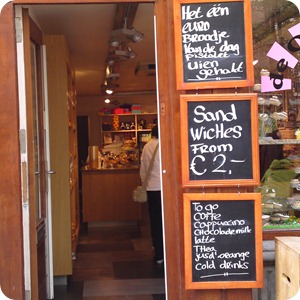 Het één
euro
Broodje
Van de dag
Pistolet
Uien
gehakt
Sand
Wiches
From
€ 2,-
To go
Coffe
Cappuccino
Chocolademilk
latte
Thea
jusd'orange
Cold drinks
de